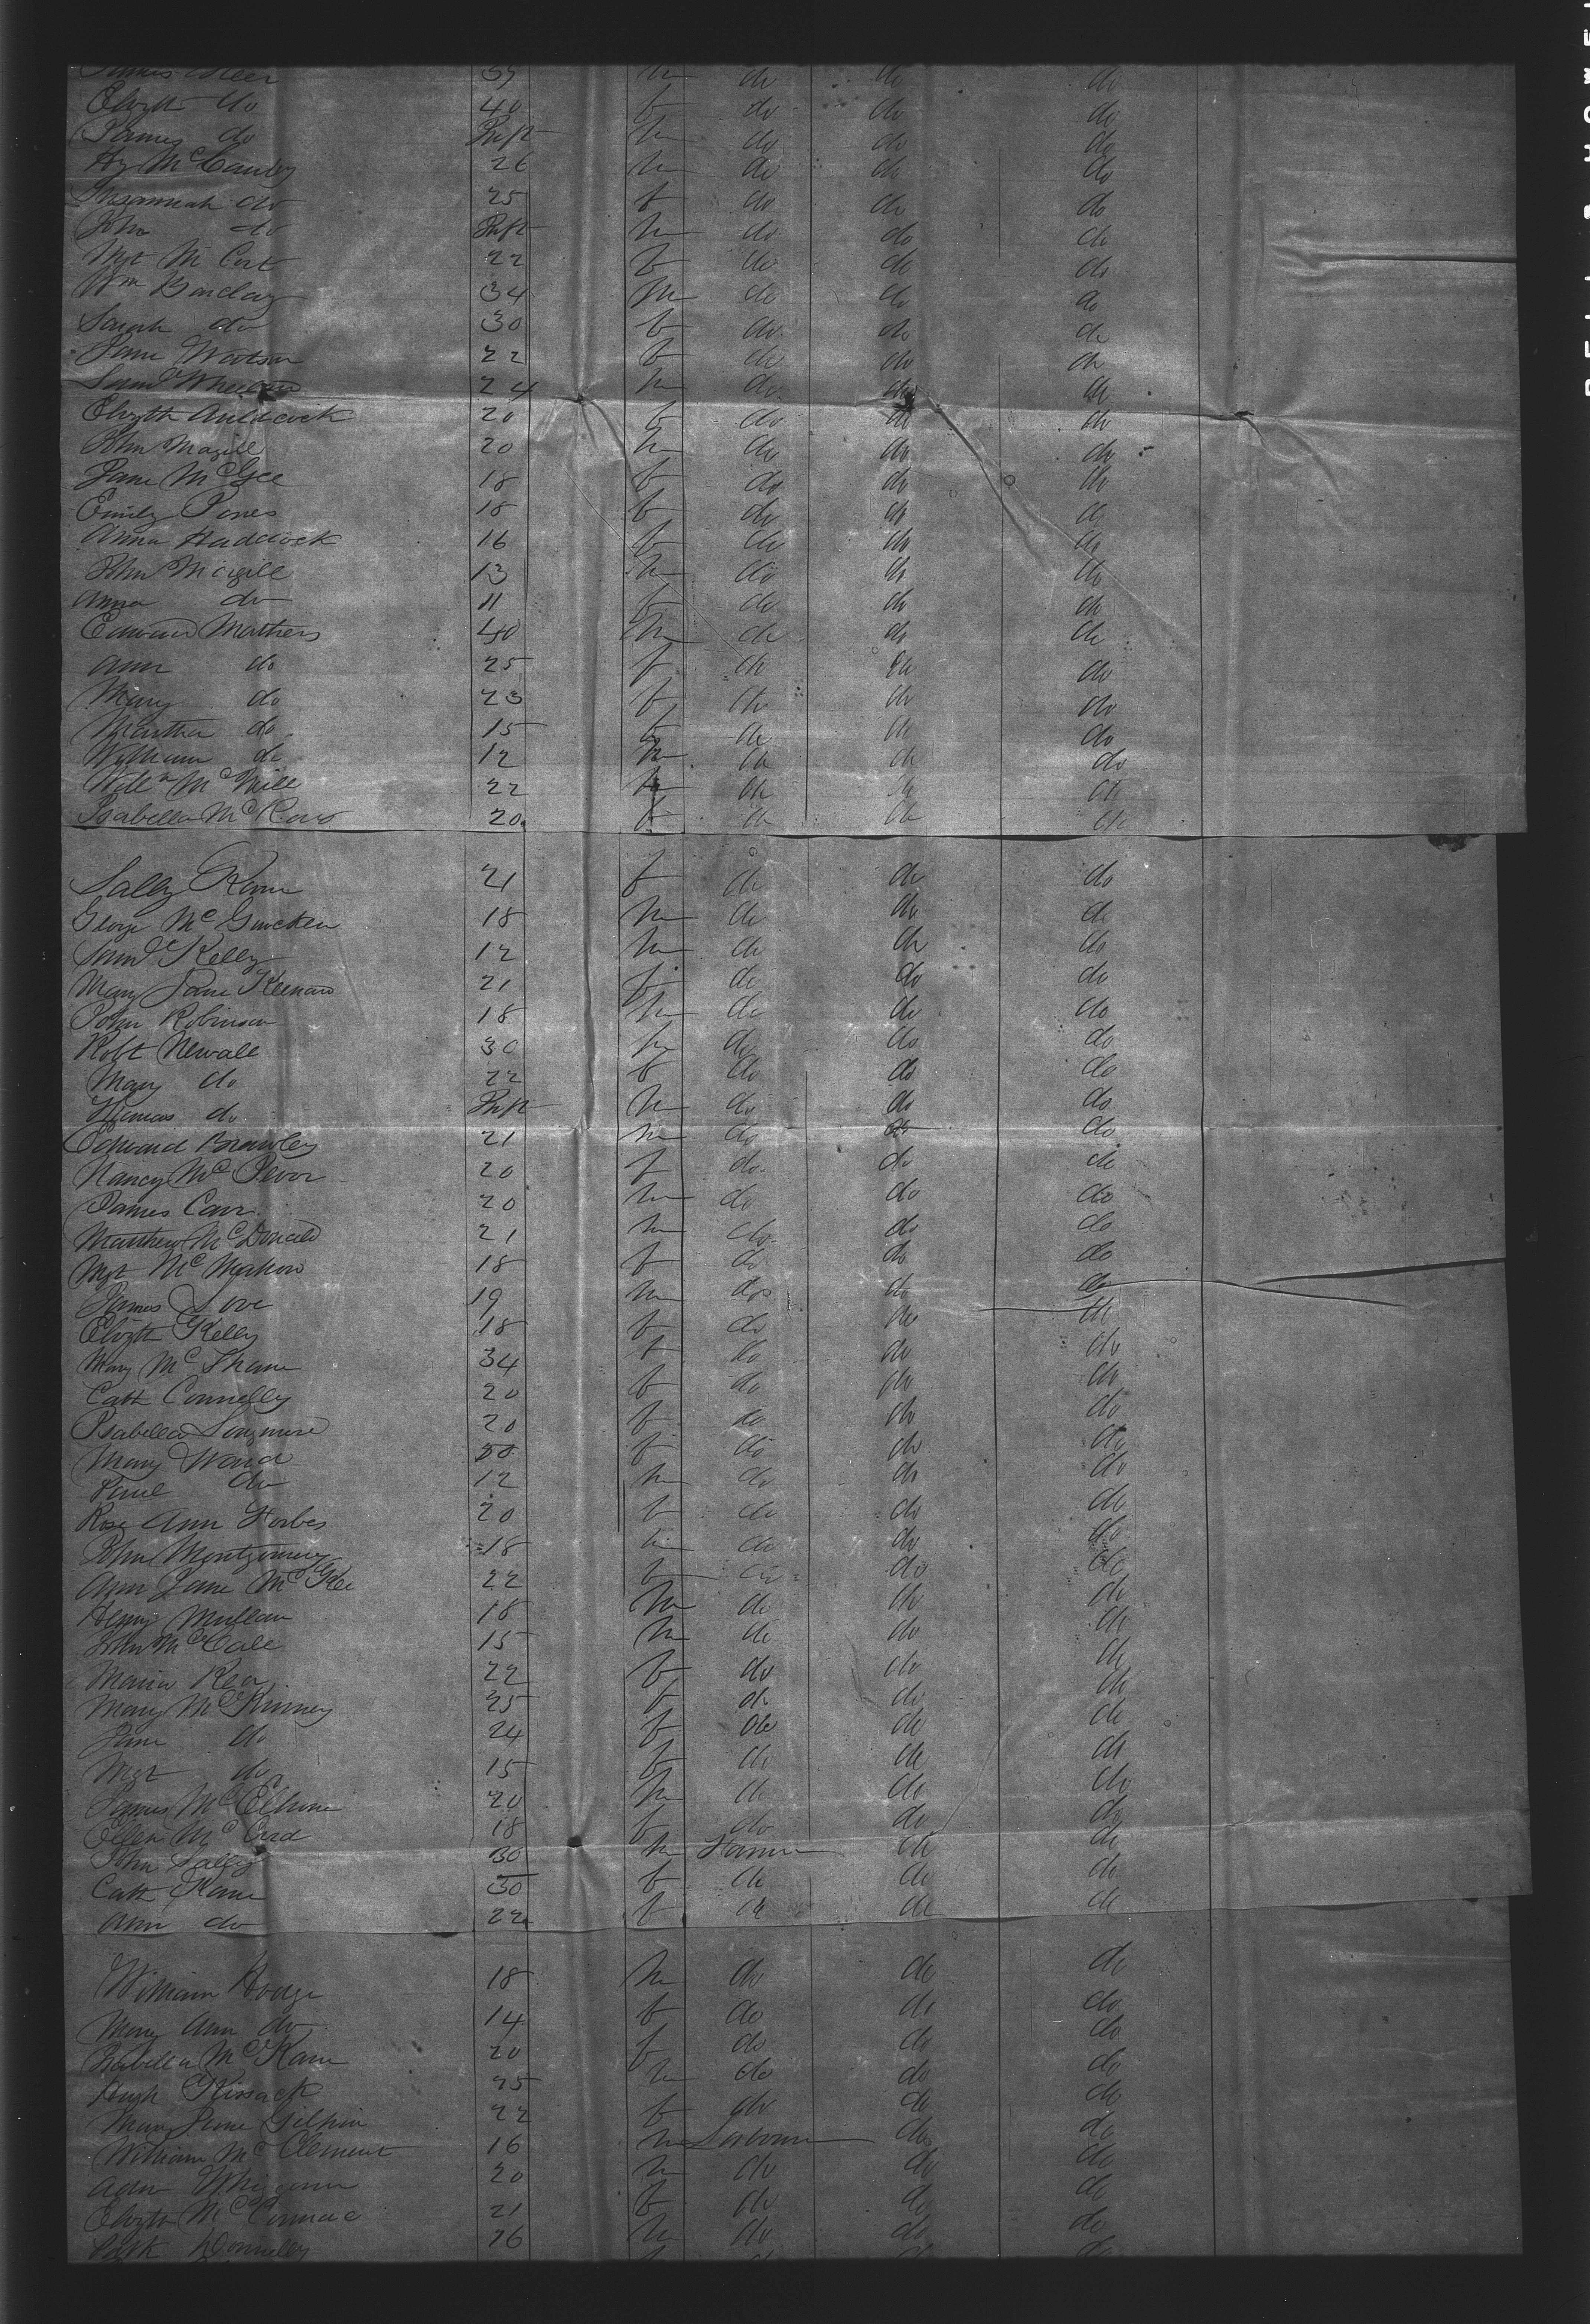 James 39 m do do do
Elizth do 40 f do do do
James do Inft m do do do
Hy McCauley 26 m do do do
Susannah do 25 f do do do
John do Inft m do do do
Mgt McCort 22 f do do do
Wm Barclay 34 m do do do
Sarah do 30 f do do do
Jane Watson 22 f do do do
Saml 24 m do do do
Elizth Auldcock 20 f do do do
John Magill 20 m do do do
Jane McGee 18 f do do do
Emily Jones 18 f do do do
Anna Haddock 16 f do do do
John Magill 13 m do do do
Anna do 11 f do do do
Edward Mathers 40 m do do do
Ann do 25 f do do do
Mary do 23 f do do do
Martha do 15 f do do do
William do 12 m do do do
Willm McNeill 22 m do do do
Isabella 20 f do do do
Sally Kane 21 f do do do
George McGucken 18 m do do do
Saml Kelly 12 m do do do
Mary Jane Keenan 21 f do do do
John Robinson 18 m do do do
Robt Newall 30 m do do do
Mary do 22 f do do do
Thomas do Inft m do do do
Edward Brawley 21 m do do do
Nancy McIvor 20 f do do do
James Carr 20 m do do do
Matthew McDonald 21 m do do do
Mgt McMahon 18 f do do do
James Love 19 m do do do
Elizth Kelly 18 f do do do
Mary McShane 34 f do do do
Cath Connelly 20 f do do do
Isabella Longmore 20 f do do do
Mary Ward 50 f do do do
Paul do 12 m do do do
Rose Ann Forbes 20 f do do do
John Montgomery 18 m do do do
Ann Jane McKee 22 f do do do
Henry Mullan 18 m do do do
John McCall 15 m do do do
Maria Rea 22 f do do do
Mary McKinney 25 f do do do
Jane do 24 f do do do
Mgt do 15 f do do do
James McElhone 20 m do do do
Ellen McCord 18 f do do do
John Lally 30 m do do
Cath Kane 50 f do do do
Ann do 22 f do do do
William Hodge 18 m do do do
Mary Ann do 14 f do do do
Isabella McKane 20 f do do do
Hugh Kissack 25 m do do do
Mary Jane Gilpin 22 f do do do
William McClement 16 m do do
20 m do do do
Elizth McCormac 21 f do do do
Patk Donnelly 26 m do do do